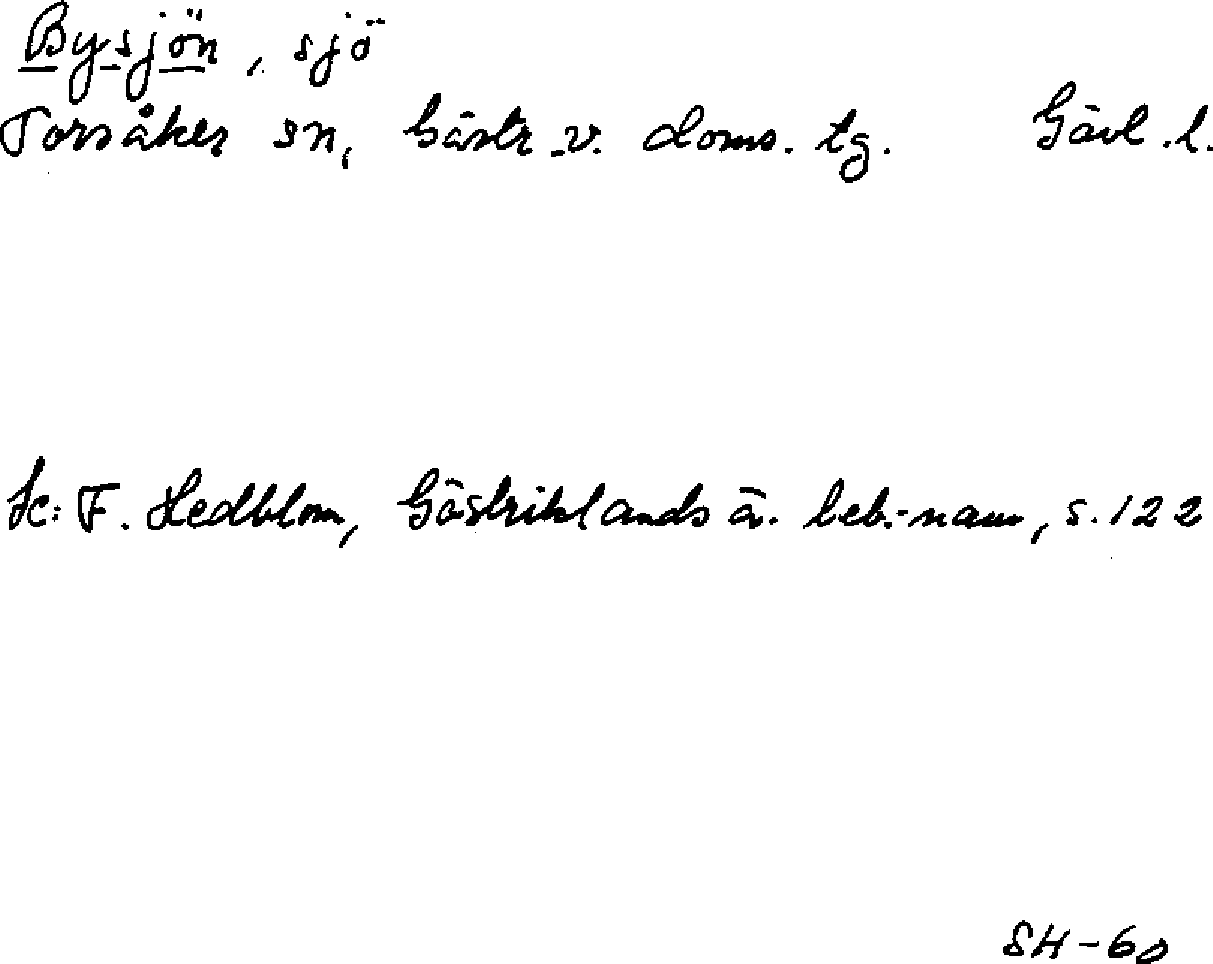 Bysjön, sjö
Torsåker sn, Gästr. v. doms. tg. Gävl. l.
Se: F. Hedblom, Gästriklands ä. beb.-namn, s. 122
SH-60